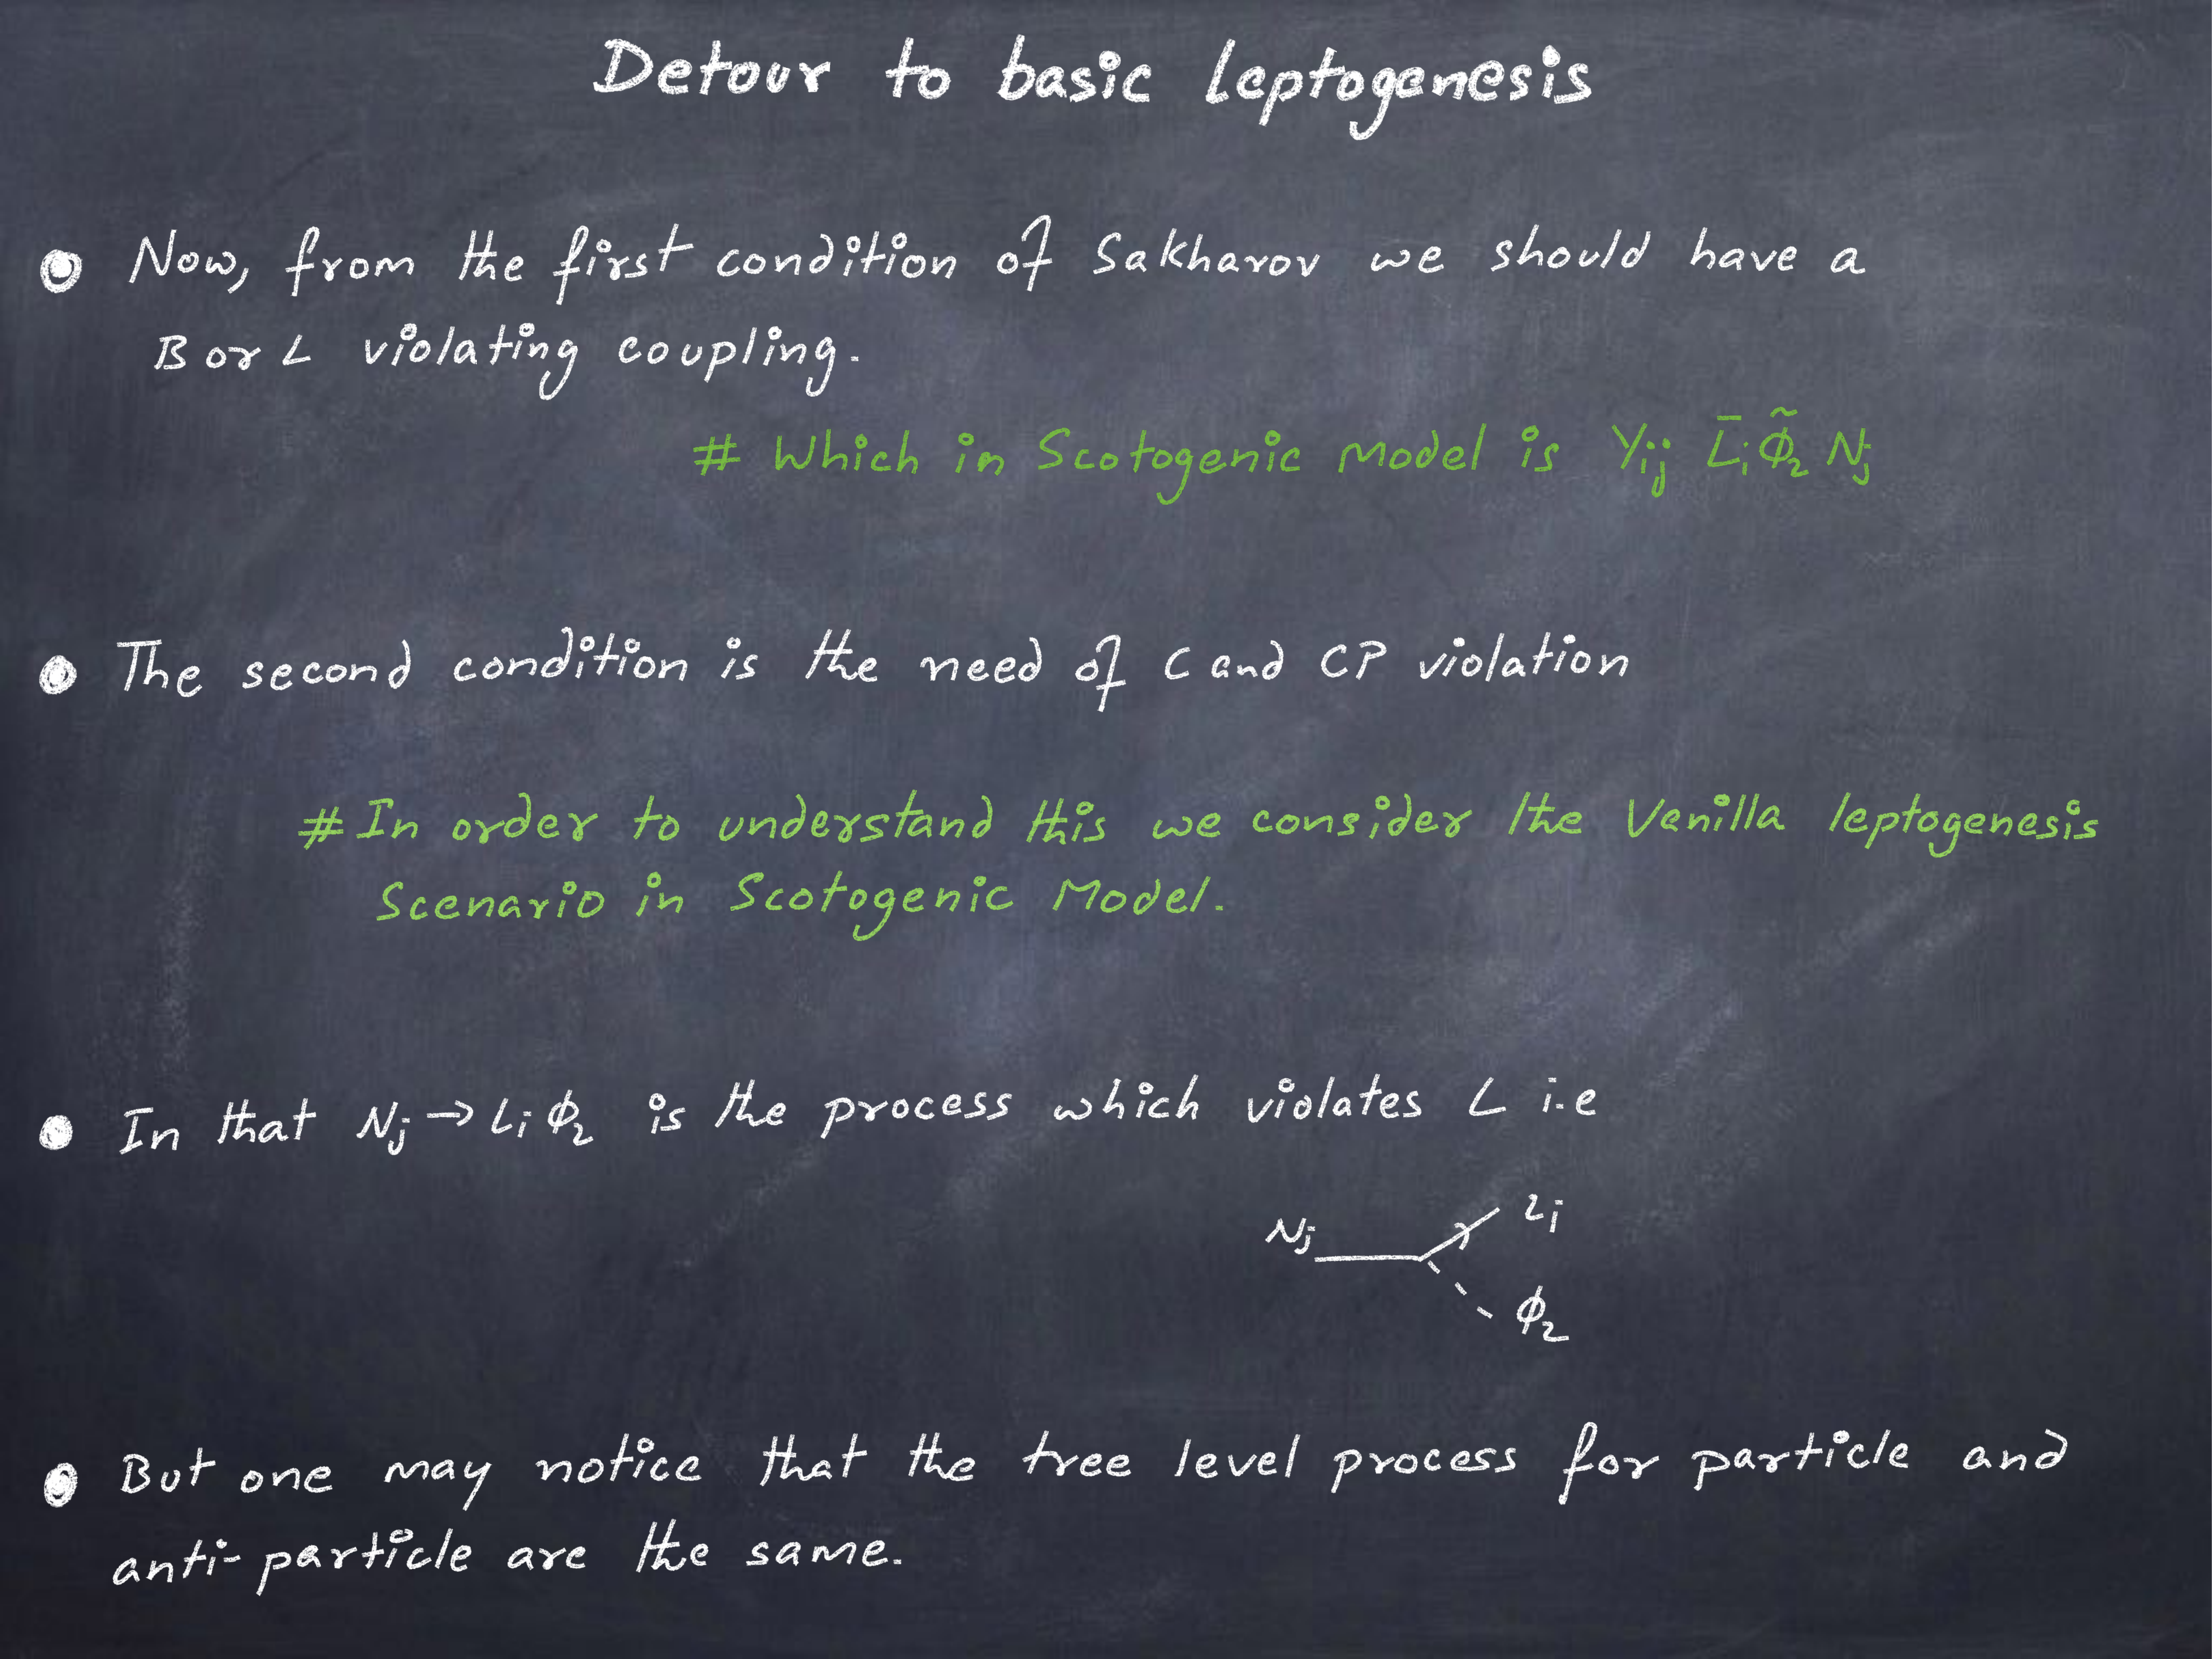 Detour to basic leptogenesis
Now, from the first condition of Sakharov we should have a
B or L violating coupling.
# Which in Scotogenic Model is Yᵢⱼ L̄ᵢ Φ̃₂ Nⱼ
The second condition is the need of C and CP violation
# In order to understand this we consider the Vanilla leptogenesis
Scenario in Scotogenic Model.
In that Nⱼ → Lᵢ Φ₂ is the process which violates L i.e
Nⱼ Lᵢ
Φ₂
But one may notice that the tree level process for particle and
anti-particle are the same.